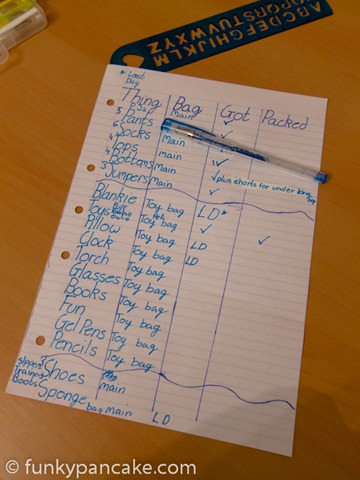 ABCDEFGHIJKLM
NOPQRSTUVWXYZ
* Last Day
Thing Bag Got Packed
5 main
6 Pants ✓
4 Socks Main
4 Tops Main
4 Bottoms Main ✓
3 Jumpers Main ✓ plus shorts for under long
Blankie Toy bag LD*
Toys Toy bag ✓
Pillow Toy bag LD ✓
Clock Toy bag LD
Torch Toy bag
Glasses Toy bag
Books Toy bag
Fun Toy bag
Gel Pens Toy bag
Pencils Toy bag
slippers Trainers Boots Shoes main
Sponge bag main LD
© funkypancake.com